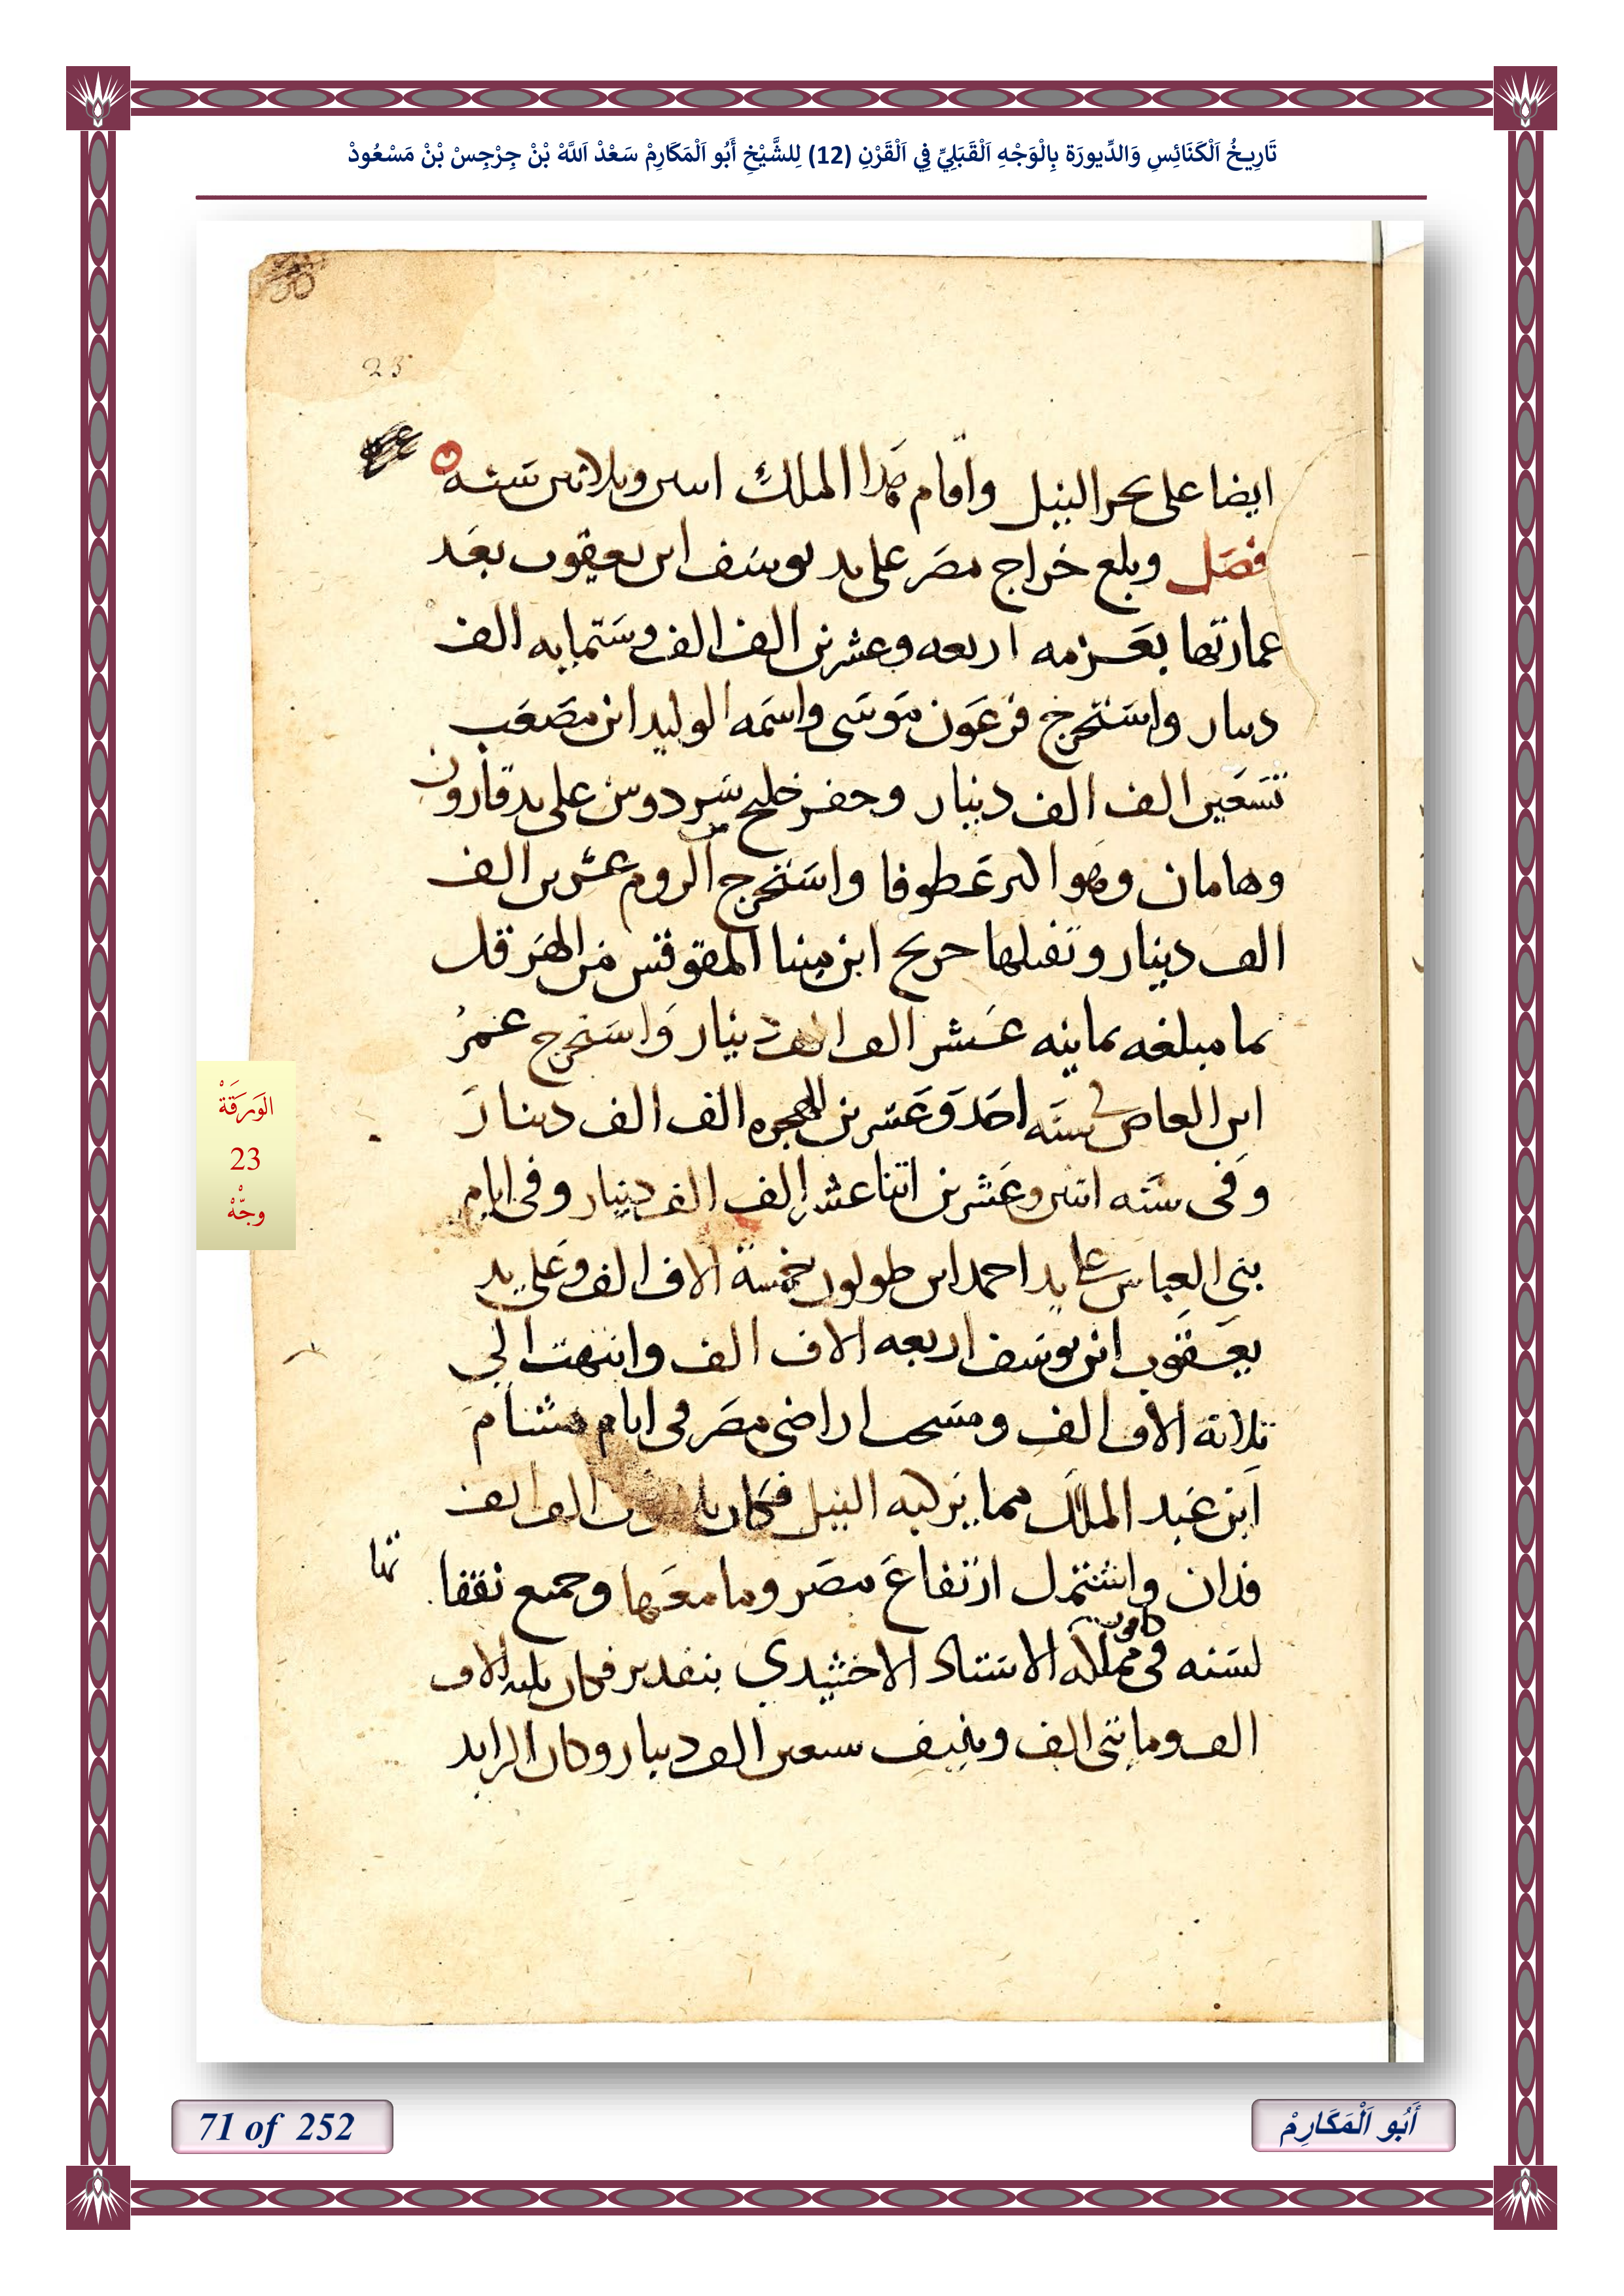 تَارِيخُ اَلْكَنَائِسِ وَالدِّيورَة بِالْوَجْهِ اَلْقَبَلِيِّ فِي اَلْقَرْنِ (12) لِلشَّيْخِ أَبُو اَلْمَكَارِمْ سَعْدْ اَللَّهْ بْنْ جِرْجِسْ بْنْ مَسْعُودْ
23
ايضا على بحر النيل واقام هذا الملك اسى وثلاثين سنه
فصل وبلغ خراج مصر على يد يوسف ابن يعقوب بعد
عمارتها بعزمه اربعه وعشرين الف الف وستمايه الف
دينار واستخرج فرعون موسى واسمه الوليد ابن مصعب
تسعين الف الف دينار وحفر خليج سردوس على يد قارون
وهامان وهو اكبر عطوفا واستخرج الروم عشرين الف
الف دينار وتقبلها جريج ابن مينا المقوقس من الهرقل
بما مبلغه ثمانيه عشر الف الف دينار واستخرج عمر
ابن العاص في سنه احد وعشرين للهجره الف الف دينار
وفى سنه اثنين وعشرين اتنا عشر الف الف دينار وفى ايام
بنى العباس على يد احمد ابن طولون خمسة الاف الف وعلى يد
يعقوب ابن يوسف اربعه الاف الف وانتهت الى
ثلاثة الاف الف ومسحت اراضى مصر فى ايام هشام
ابن عبد الملك مما يركبه النيل فكان الف الف
فدان واشتمل ارتفاع مصر وما معها وجميع نفقا تها
لسنه فى مملكة كافور الاستاد الاخشيدي بتقدير فكان ثلثه الاف
الف ومايتى الف ونيف سبعين الف دينار وكان الزايد
الوَرَقَةْ
23
وجّهْ
71 of 252
أَبُو اَلْمَكَارِمْ